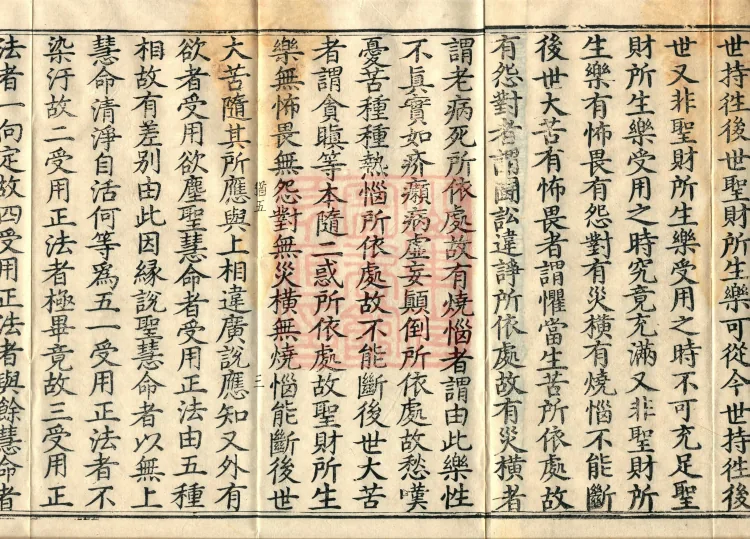 世持往後世聖財所生樂可從今世持往後
世又非聖財所生樂受用之時不可充足聖
財所生樂受用之時究竟充滿又非聖財所
生樂有怖畏有怨對有災橫有燒惱不能斷
後世大苦有怖畏者謂懼當生苦所依處故
有怨對者謂鬪訟違諍所依處故有災橫者
謂老病死所依處故有燒惱者謂由此樂性
不眞實如疥癩病虛妄顛倒所依處故愁嘆
憂苦種種熱惱所依處故不能斷後世大苦
者謂貪瞋等本隨二惑所依處故聖財所生
樂無怖畏無怨對無災橫無燒惱能斷後世
大苦隨其所應與上相違廣說應知又外有
欲者受用欲塵聖慧命者受用正法由五種
相故有差別由此因緣說聖慧命者以無上
慧命清淨自活何等爲五一受用正法者不
染汙故二受用正法者極畢竟故三受用正
法者一向定故四受用正法者與餘慧命者
三